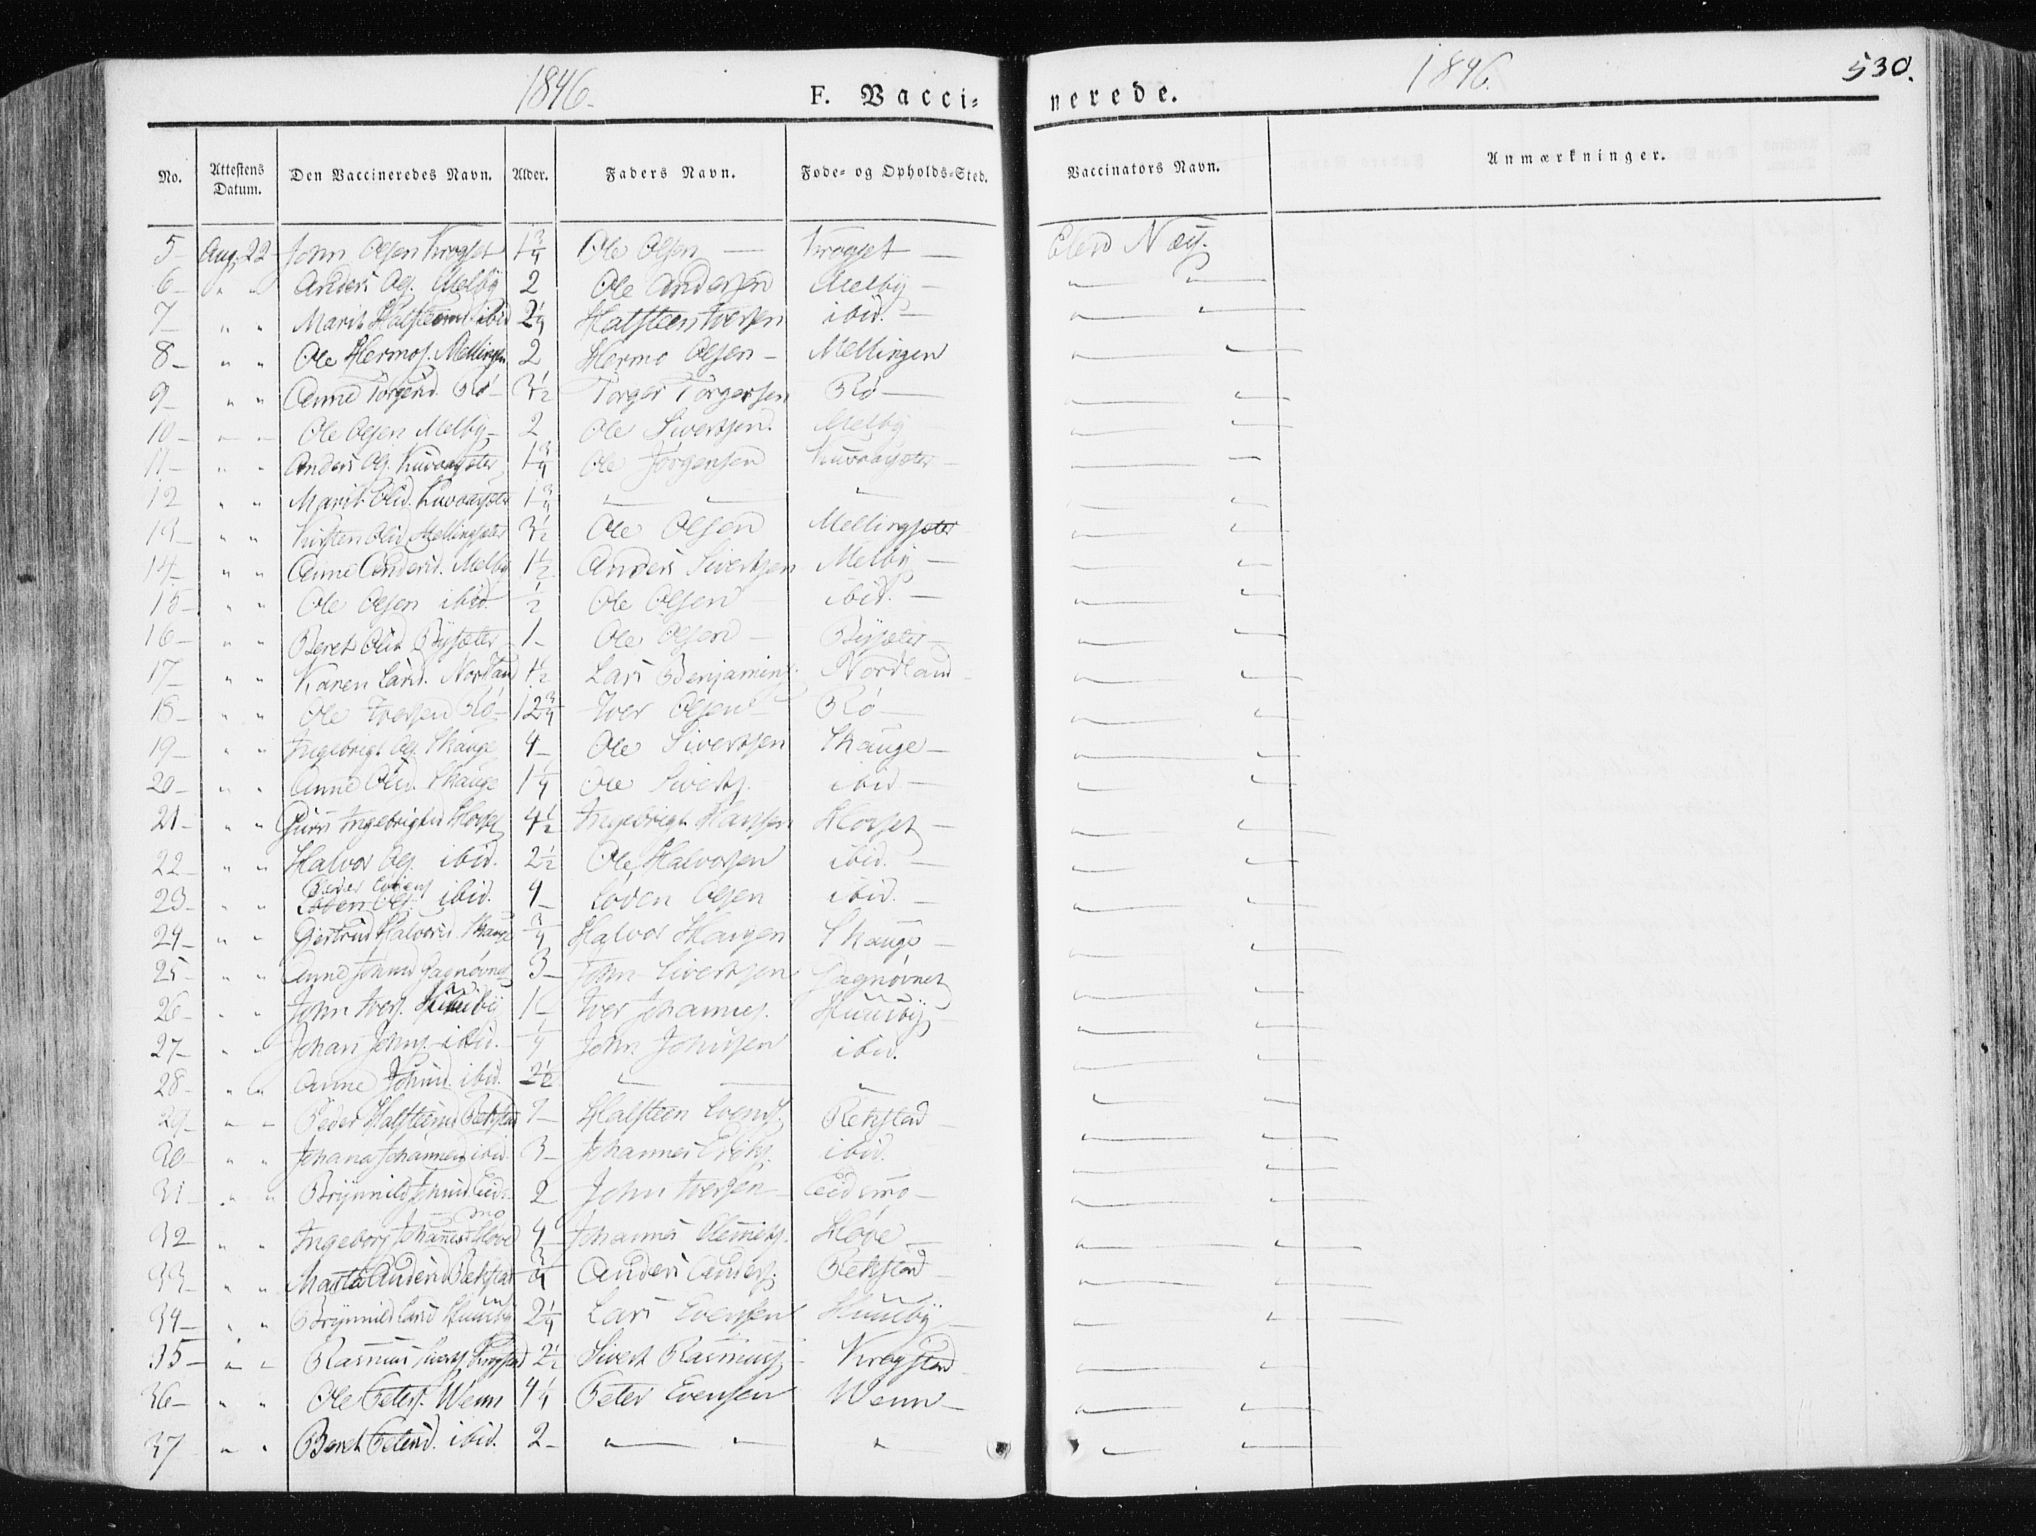 1846. F. Vacci= nerede. 1846. 530.
No. Attestens Datum. Den Vaccineredes Navn. Alder. Faders Navn. Føde- og Opholds-Sted. Vaccinators Navn. Anmærkninger.
5 Aug. 22 John Olsen Krogset 1 3/4 Ole Olsen — Krogset — Elen Næss.
6 " " Anders Ols. Melby 2 Ole Andersen Melby — "
7 " " Marit Halsteensd ibid 2 1/4 Halsteen Iversen ibid. — "
8 " " Ole Hermos. Mellingen 2 Hermo Olsen — Mellingen "
9 " " Anne Torgersd. Rö 3 1/2 Torger Torgersen Rö — "
10 " " Ole Olsen Melby 2 Ole Sivertsen Melby "
11 " " Anders Ols. 1 3/4 Ole Jörgensen "
12 " " Marit Olsd. 1 3/4 " " "
13 " " Kirsten Olsd Mellingsæter 3 1/2 Ole Olsen Mellingsæter "
14 " " Anne Andersd. Melby 1 1/2 Anders Sivertsen Melby — "
15 " " Ole Olsen ibid. 1/2 Ole Olsen ibid. — "
16 " " Beret Olsd Bysæter 1 Ole Olsen — Bysæter "
17 " " Karen Larsd. Nordland 1 1/2 Lars Benjamins. Nordland "
18 " " Ole Iversen Rö 12 3/4 Iver Olsen Rö — "
19 " " Ingebrigt Ols. Skauge 4 Ole Sivertsen Skauge — "
20 " " Anne Olsd. Skauge 1 1/4 Ole Siverts. ibid — "
21 " " Guru Ingebrigtsd Horset 4 1/2 Ingebrigt Hanssen Horset — "
22 " " Halvor Ols. ibid. 2 1/2 Ole Halvorsen ibid. — "
23 " " Peder ibid. 4 Loden Olsen ibid. — "
24 " " Gjertrud Halvorsd Skauge 3/4 Halvor Skauge — "
25 " " Anne Johnsd Gagnövnet 3 John Sivertsen Gagnövnet "
26 " " John Ivers. Huusby 1 Iver Johannes. Huusby "
27 " " Johan Johns. ibid. 1/4 John Johnsen ibid. "
28 " " Anne Johnsd. ibid. 2 1/2 " "
29 " " Peder Halsteens Rekstad 7 Halsteen Evens. Rekstad "
30 " " Johana Johannesd ibid. 3 Johannes Eriks. ibid. "
31 " " Brynnild Johnsd. Eidsmo 2 John Iversen — Eidsmo — "
32 " " Ingeborg Johannesd Höve 4 Johannes Clemets. Höve — "
33 " " Marta Andersd Rekstad 3/4 Anders Anders. Rekstad "
34 " " Brynnild Larsd Huusby 2 1/4 Lars Evensen Huusby "
35 " " Rasmus Siverts Krogstad 2 1/2 Sivert Rasmuss. Krogstad "
36 " " Ole Peters. Wenn 4 1/4 Peter Evensen Wenn — "
37 " " Beret Petersd. ibid. 2 " " " "